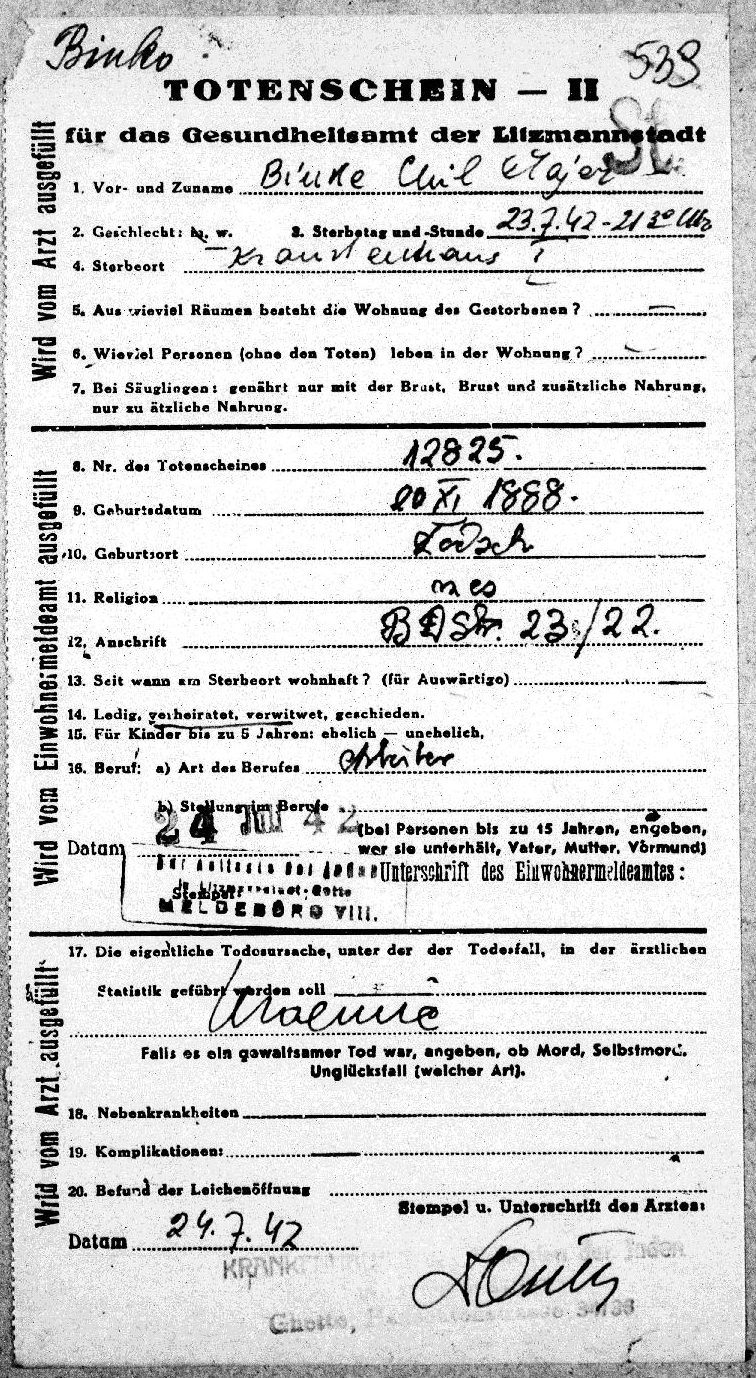 Binko
539
TOTENSCHEIN — II
für das Gesundheitsamt der Litzmannstadt
St
Wird vom Arzt ausgefüllt
1. Vor- und Zuname Binke Chil Majer
2. Geschlecht: m. w. 3. Sterbetag und -Stunde 23.7.42 - 21 30 Uhr
4. Sterbeort Krankenhaus I
5. Aus wieviel Räumen besteht die Wohnung des Gestorbenen? —
6. Wieviel Personen (ohne den Toten) leben in der Wohnung? —
7. Bei Säuglingen: genährt nur mit der Brust, Brust und zusätzliche Nahrung,
nur zu ätzliche Nahrung.
Wird vom Einwohnermeldeamt ausgefüllt
8. Nr. des Totenscheines 12825.
9. Geburtsdatum 20 XI 1888.
10. Geburtsort Lodsch
11. Religion mos
12. Anschrift 23/22.
13. Seit wann am Sterbeort wohnhaft? (für Auswärtige) —
14. Ledig, verheiratet, verwitwet, geschieden.
15. Für Kinder bis zu 5 Jahren: ehelich — unehelich,
16. Beruf: a) Art des Berufes Arbeiter
b) Stellung im Berufe
24 Juli 42
(bei Personen bis zu 15 Jahren, angeben,
Datam wer sie unterhält, Vater, Mutter, Vormund)
Der Aelteste der Juden
Unterschrift des Einwohnermeldeamtes:
in Litzmannstadt-Getto
Stempel:
MELDEBÜRO VIII.
Wird vom Arzt ausgefüllt
17. Die eigentliche Todesursache, unter der der Todesfall, in der ärztlichen
Statistik geführt werden soll
Uraemie
Falls es ein gewaltsamer Tod war, angeben, ob Mord, Selbstmord.
Unglücksfall (welcher Art).
18. Nebenkrankheiten
19. Komplikationen:
20. Befund der Leichenöffnung
Stempel u. Unterschrift des Arztes:
Datam 24.7.42
der Juden
Ghetto, 34/36